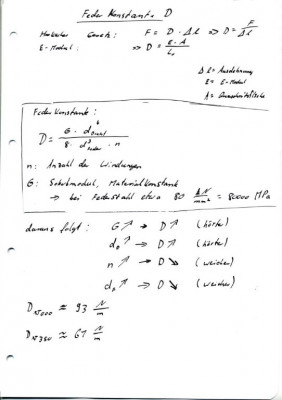 Feder Konstante D
Hookesches Gesetz: F = D · Δl => D = F / Δl
E-Modul: => D = E · A / L₀
Δl = Ausdehnung
E = E-Modul
A = Querschnittsfläche
Federkonstante:
D = G · d⁴Draht / 8 · d³Feder · n
n: Anzahl der Windungen
G: Schubmodul, Materialkonstante
=> bei Federstahl etwa 80 kN/mm² = 80000 MPa
daraus folgt: G↗ → D↗ (härter)
↗ → D↗ (härter)
n↗ → D↘ (weicher)
↗ → D↘ (weicher)
≈ 93 N/m
≈ 61 N/m